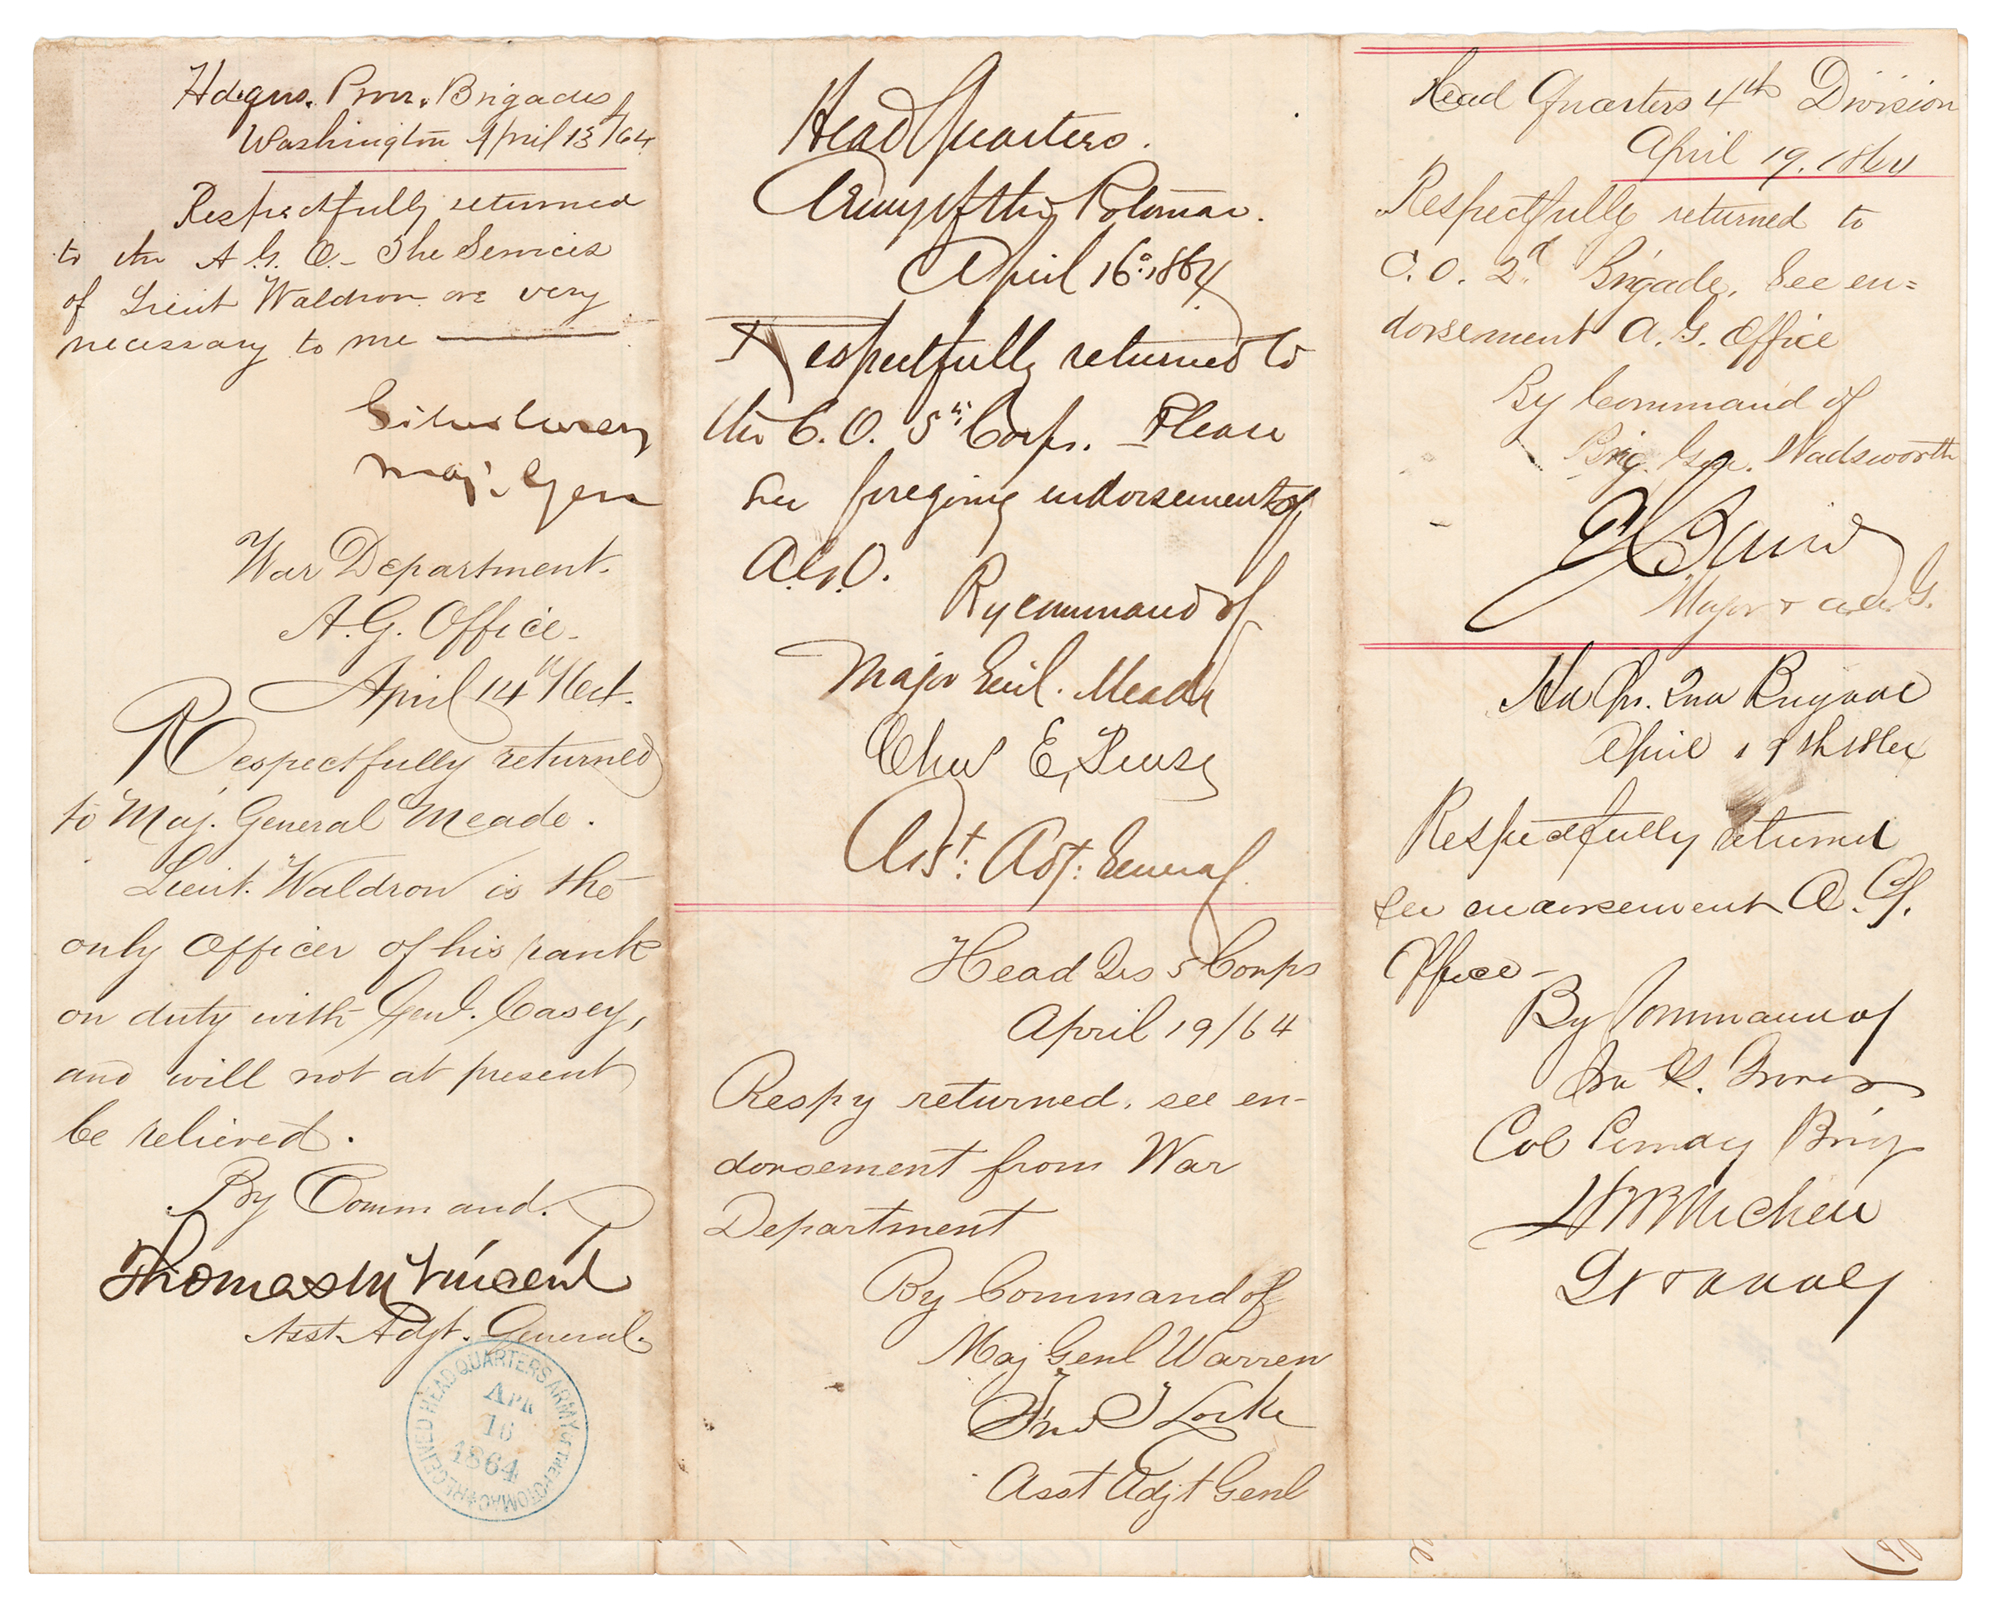 Hdqrs. Prov. Brigades
Washington April 13/64
Respectfully returned
to the A.G.O. - The Services
of Lieut Waldron are very
necessary to me
Silas Casey
Maj. Gen
War Department.
A.G. Office.
April 14th 1864.
Respectfully returned
to Maj. General Meade.
Lieut. Waldron is the
only Officer of his rank
on duty with Genl. Casey,
and will not at present
be relieved.
By Command.
Thomas M Vincent
Asst. Adjt. General.
RECEIVED HEAD QUARTERS ARMY OF THE POTOMAC
APR
16
1864
Head Quarters.
Army of the Potomac.
April 16. 1864
Respectfully returned to
the C.O. 5th Corps. Please
see foregoing endorsement of
A.G.O.
By command of
Major Genl. Meade
Chas E, Pease
Asst. Adjt. General
Head Qrs 5 Corps
April 19/64
Respy returned. see en-
dorsement from War
Department
By Command of
Maj Genl Warren
Fred T Locke
Asst Adjt Genl
Head Quarters 4th Division
April 19. 1864
Respectfully returned to
C.O. 2d Brigade. See en=
dorsement A.G. Office
By Command of
Brig. Gen. Wadsworth
E Baird
Major & A.A.G.
Hd Qrs. 2nd Brigade
April 19th 1864
Respectfully returned
see endorsement A.G.
Office -
By Command of
Ira G. Grover
Col Comdg Brig
H B Mcchell
Lt &